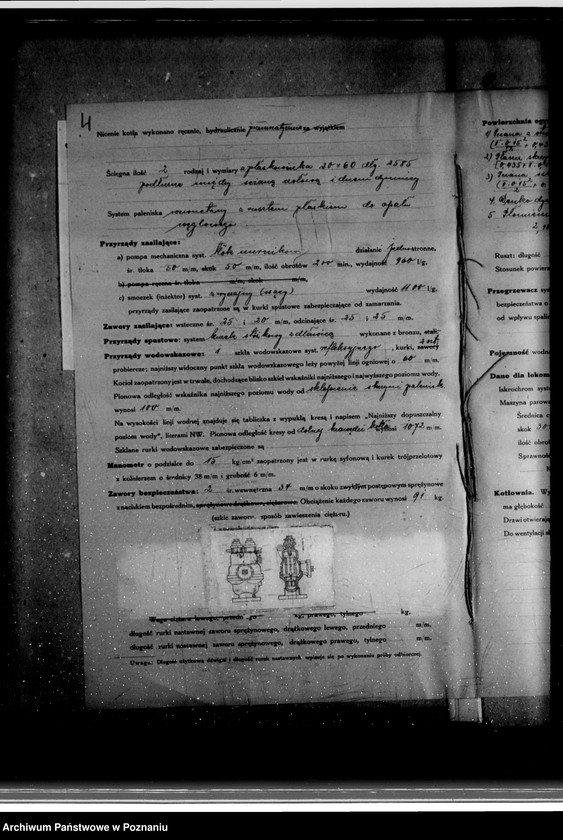 4
Nitenie kotła wykonano ręcznie, hydraulicznie pneumatycznie za wyjątkiem
Ścięgna ilość 2 rodzaj i wymiary z płaskownika 20 × 60 dłg 2585
podłużne między ścianą sitową i dnem dymnicy
System paleniska z rusztem płaskim do opału
węglowego.
Przyrządy zasilające:
a) pompa mechaniczna syst. działanie jednostronne,
śr. tłoka 60 m/m, skok 50 m/m, ilość obrotów 200 min., wydajność 960 l/g,
b) pompa ręczna śr. tłoka m/m, skok m/m,
c) smoczek (inżektor) syst. (ssący) wydajność 1100 l/g,
przyrządy zasilające zaopatrzone są w kurki spustowe zabezpieczające od zamarzania.
Zawory zasilające: wsteczne śr. 25 i 20 m/m, odcinające śr. 25 i 25 m/m.
Przyrządy spustowe: system kurek stożkowy z dławicą wykonane z bronzu, stali
Przyrządy wodowskazowe: 1 szkła wodowskazowe syst. refleksyjnego, kurki, zawory 2 szt.
probiercze; najniższy widoczny punkt szkła wodowskazowego leży powyżej linji ogniowej o 60 m/m.
Kocioł zaopatrzony jest w trwałe, dochodzące blisko szkieł wskaźniki najniższego i najwyższego poziomu wody.
Pionowa odległość wskaźnika najniższego poziomu wody od sklepienia skrzyni palenisk
wynosi 100 m/m.
Na wysokości linji wodnej znajduje się tabliczka z wypukłą kresą i napisem „Najniższy dopuszczalny
poziom wody", literami NW. Pionowa odległość kresy od dolnej krawędzi kotła wynosi 1072 m/m.
Szklane rurki wodowskazowe zabezpieczone są
Manometr o podziałce do 15 kg/cm² zaopatrzony jest w rurkę syfonową i kurek trójprzelotowy
z kołnierzem o średnicy 38 m/m i grubości 6 m/m.
Zawory bezpieczeństwa: 2 śr. wewnętrzna 34 m/m o skoku zwykłym postępowym sprężynowe
z naciskiem bezpośrednim, sprężynowo-drążkowe, ciężarowe. Obciążenie każdego zaworu wynosi 91 kg.
(szkic zaworu, sposób zawieszenia ciężaru.)
Waga ciężaru lewego, przedniego kg, prawego, tylnego kg,
długość rurki nastawnej zaworu sprężynowego, drążkowego lewego, przedniego m/m,
długość rurki nastawnej zaworu sprężynowego, drążkowego prawego, tylnego m/m.
Uwaga. Długość użytkową dźwigni i długość rurek nastawnych wpisuje się po wykonaniu próby odbiorczej.
Powierzchnia ogr
1) Ściana
2)
3) Ściana
4.
5.
Ruszt: długość
Stosunek powierz
Przegrzewacz sys
bezpieczeństwa o
od wpływu spalin
Pojemność wodna
Dane dla lokom
Iskrochron syst
Maszyna parowa
Średnica c
skok 30
ilość obrot
Sprawność
Kotłownia. Wy
ma głębokość
Drzwi otwierają
Do wentylacji sł
Archiwum Państwowe w Poznaniu